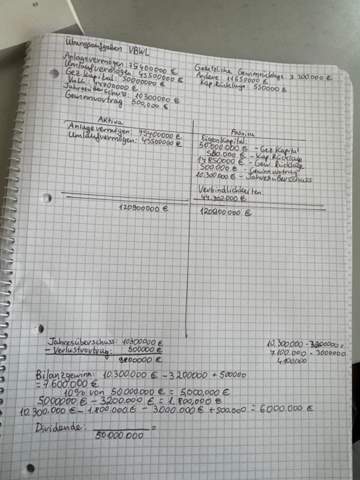 Übungsaufgaben VBWL
Anlagevermögen 75400000 €
Umlaufvermögen 45500000 €
Gez. Kapital: 50000000 €
Jahresüberschuss: 10300000 €
Gewinnvortrag 500,000 €
Gesetzliche Gewinnrücklage 3.200000 €
Andere 11650000 €
Kap. Rücklage 550000 €
Aktiva
Passiva
Anlagevermögen: 75400000 €
Umlaufvermögen: 45500000 €
Eigenkapital
50.000.000 € - Gez Kapital
- Kap. Rücklage
14850000 € - Gew. Rücklage
500.000 € - Gewinnvortrag
10.300.000 € - Jahresüberschuss
Verbindlichkeiten
120900000 €
120900000 €
Jahresüberschuss: 10300000 €
- Verlustvortrag: 500000 €
9800000 €
10.300.000 -
7.100.000 - 3000000
4.100000
Bilanzgewinn: 10.300.000 - 3200000 + 500000
= 7.600.000 €
10% von 50000000 € = 5,000.000 €
5000000 € - 3200000 € = 1.800,000 €
10.300.000 € - 1.800.000 € - 3.000.000 € + 500,000 € = 6000.000 €
Dividende: =
50.000.000